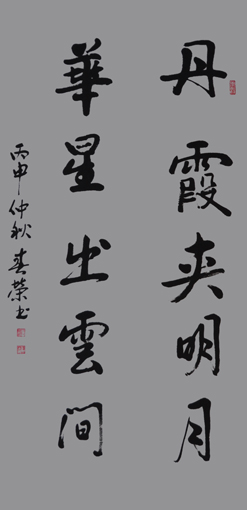 丹霞夹明月
華星出雲間
丙申仲秋 春荣书